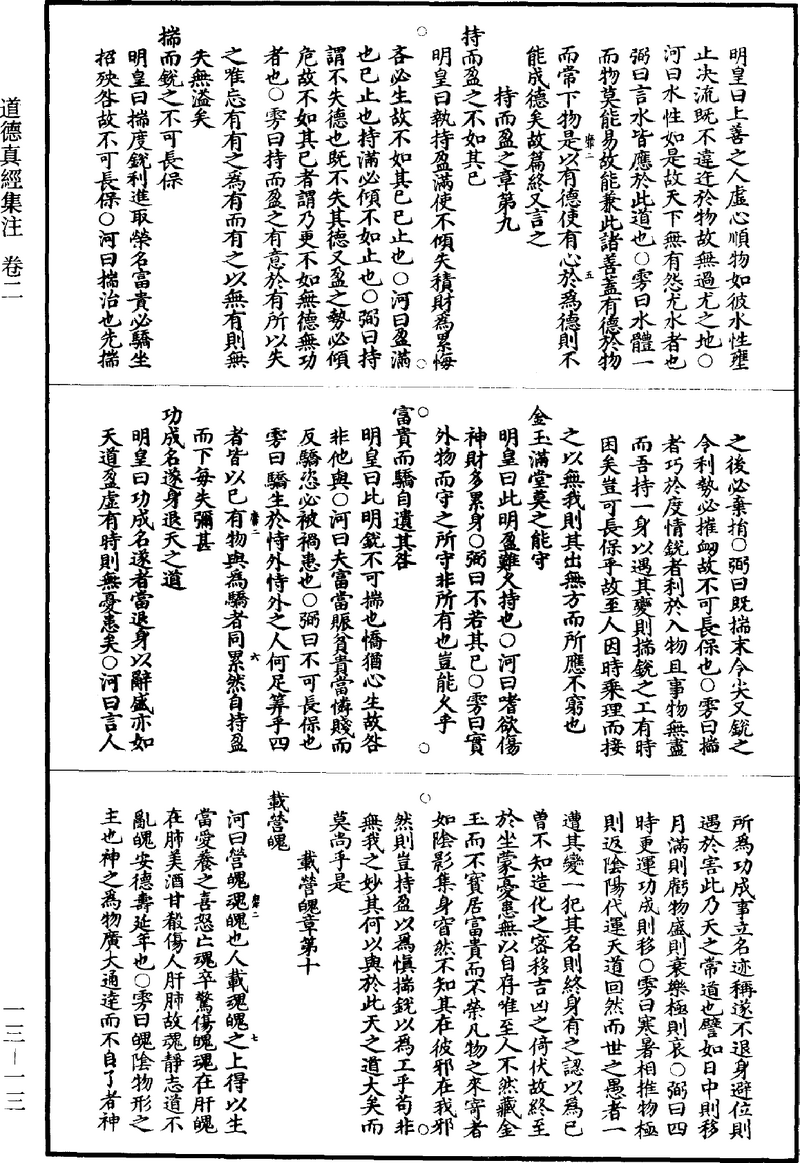 道德真經集注 卷二
明皇曰上善之人虛心順物如彼水性壅
止決流既不違迕於物故無過尤之地○
河曰水性如是故天下無有怨尤水者也
弼曰言水皆應於此道也○雱曰水體一
而物莫能易故能兼此諸善蓋有德於物
而常下物是以有德使有心於為德則不
能成德矣故篇終又言之
持而盈之章第九
持而盈之不如其已
明皇曰執持盈滿使不傾失積財為累悔
吝必生故不如其已已止也○河曰盈滿
也已止也持滿必傾不如止也○弼曰持
謂不失德也既不失其德又盈之勢必傾
危故不如其已者謂乃更不如無德無功
者也○雱曰持而盈之有意於有所以失
之唯忘有有之為有而有之以無有則無
失無溢矣
揣而銳之不可長保
明皇曰揣度銳利進取榮名富貴必驕坐
招殃咎故不可長保○河曰揣治也先揣
之後必棄捐○弼曰既揣末令尖又銳之
令利勢必摧衂故不可長保也○雱曰揣
者巧於度情銳者利於入物且事物無盡
而吾持一身以遇其變則揣銳之工有時
因矣豈可長保乎故至人因時乘理而接
之以無我則其出無方而所應不窮也
金玉滿堂莫之能守
明皇曰此明盈難久持也○河曰嗜欲傷
神財多累身○弼曰不若其已○雱曰實
外物而守之所守非所有也豈能久乎
富貴而驕自遺其咎
明皇曰此明銳不可揣也憍猶心生故咎
非他與○河曰夫富當賑貧貴當憐賤而
反驕恣必被禍患也○弼曰不可長保也
雱曰驕生於恃外恃外之人何足算乎四
者皆以已有物與為驕者同累然自持盈
而下每失彌甚
功成名遂身退天之道
明皇曰功成名遂者當退身以辭盛亦如
天道盈虛有時則無憂患矣○河曰言人
所為功成事立名迹稱遂不退身避位則
遇於害此乃天之常道也譬如日中則移
月滿則虧物盛則衰樂極則哀○弼曰四
時更運功成則移○雱曰寒暑相推物極
則返陰陽代運天道回然而世之愚者一
遭其變一犯其名則終身有之認以為已
曾不知造化之密移吉凶之倚伏故終至
於坐蒙憂患無以自存唯至人不然藏金
玉而不寶居富貴而不榮凡物之來寄者
如陰影集身窅然不知其在彼邪在我邪
然則豈持盈以為慎揣銳以為工乎苟非
無我之妙其何以與於此天之道大矣而
莫尚乎是
載營魄章第十
載營魄
河曰營魄魂魄也人載魂魄之上得以生
當愛養之喜怒亡魂卒驚傷魄魂在肝魄
在肺美酒甘殽傷人肝肺故魂靜志道不
亂魄安德壽延年也○雱曰魄陰物形之
主也神之為物廣大通達而不自了者神
一三—一三